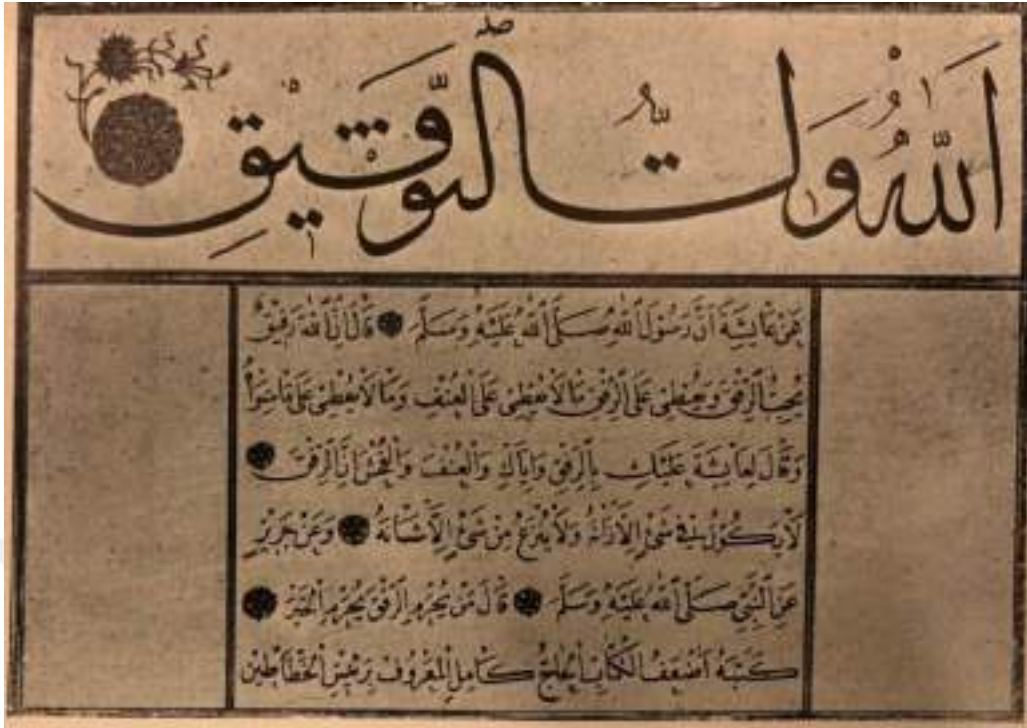 اَللّٰهُ وَلِيُّ التَّوْفِيْقِ
عَنْ عَايِشَةَ اَنَّ رَسُولَ اللّٰهِ صَلَّى اللّٰهُ عَلَيْهِ وَسَلَّمَ قَالَ اِنَّ اللّٰهَ رَفِيقٌ
يُحِبُّ الرِّفْقَ وَيُعْطِى عَلَى الرِّفْقِ مَا لَا يُعْطِى عَلَى الْعُنْفِ وَمَا لَا يُعْطِى عَلَى مَا سِوَاهُ
وَقَالَ لِعَايِشَةَ عَلَيْكِ بِالرِّفْقِ وَاِيَّاكِ وَالْعُنْفَ وَالْفُحْشَ اِنَّ الرِّفْقَ
لَا يَكُونُ فِى شَىْءٍ اِلَّا زَانَهُ وَلَا يُنْزَعُ مِنْ شَىْءٍ اِلَّا شَانَهُ وَعَنْ جَرِيرٍ
عَنِ النَّبِىِّ صَلَّى اللّٰهُ عَلَيْهِ وَسَلَّمَ قَالَ مَنْ يُحْرَمِ الرِّفْقَ يُحْرَمِ الْخَيْرَ
كَتَبَهُ اَضْعَفُ الْكُتَّابِ الْحَاجّ كَامِل الْمَعْرُوف بِرَئِيسِ الْخَطَّاطِينَ